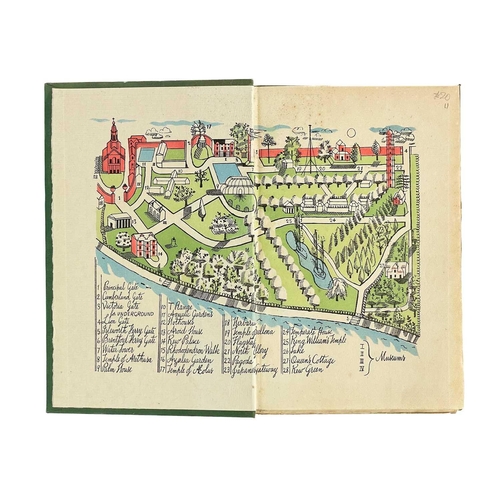 1 Principal Gate
2 Cumberland Gate
3 Victoria Gate
for UNDERGROUND
4 Lion Gate
5 Isleworth Ferry Gate
6 Brentford Ferry Gate
7 Water Tower
8 Temple of Arethusa
9 Palm House
10 T Range
11 Aquatic Gardens
12 Hothouses
13 Aroid House
14 Kew Palace
15 Rhododendron Walk
16 Azalea Garden
17 Temple of Aeolus
18 Herbarium
19 Temple Bellona
20 Flagstaff
21 North Gallery
22 Pagoda
23 Japanese Gateway
24 Temperate House
25 King William's Temple
26 Lake
27 Queen's Cottage
28 Kew Green
I
II
III
IV
Museums